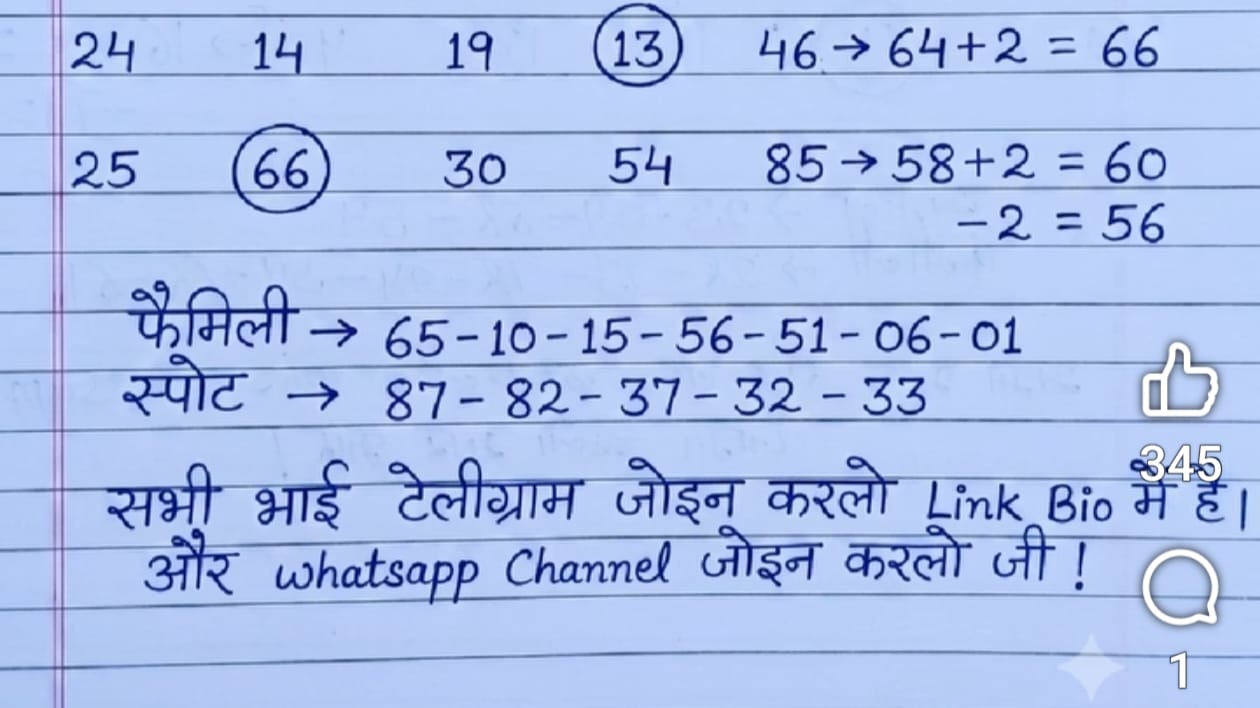 24 14 19 13 46 → 64+2 = 66
25 66 30 54 85 → 58+2 = 60
-2 = 56
फैमिली → 65-10-15-56-51-06-01
स्पोट → 87-82-37-32-33
345
सभी भाई टेलीग्राम जोइन करलो Link Bio में है।
और whatsapp Channel जोइन करलो जी !
1